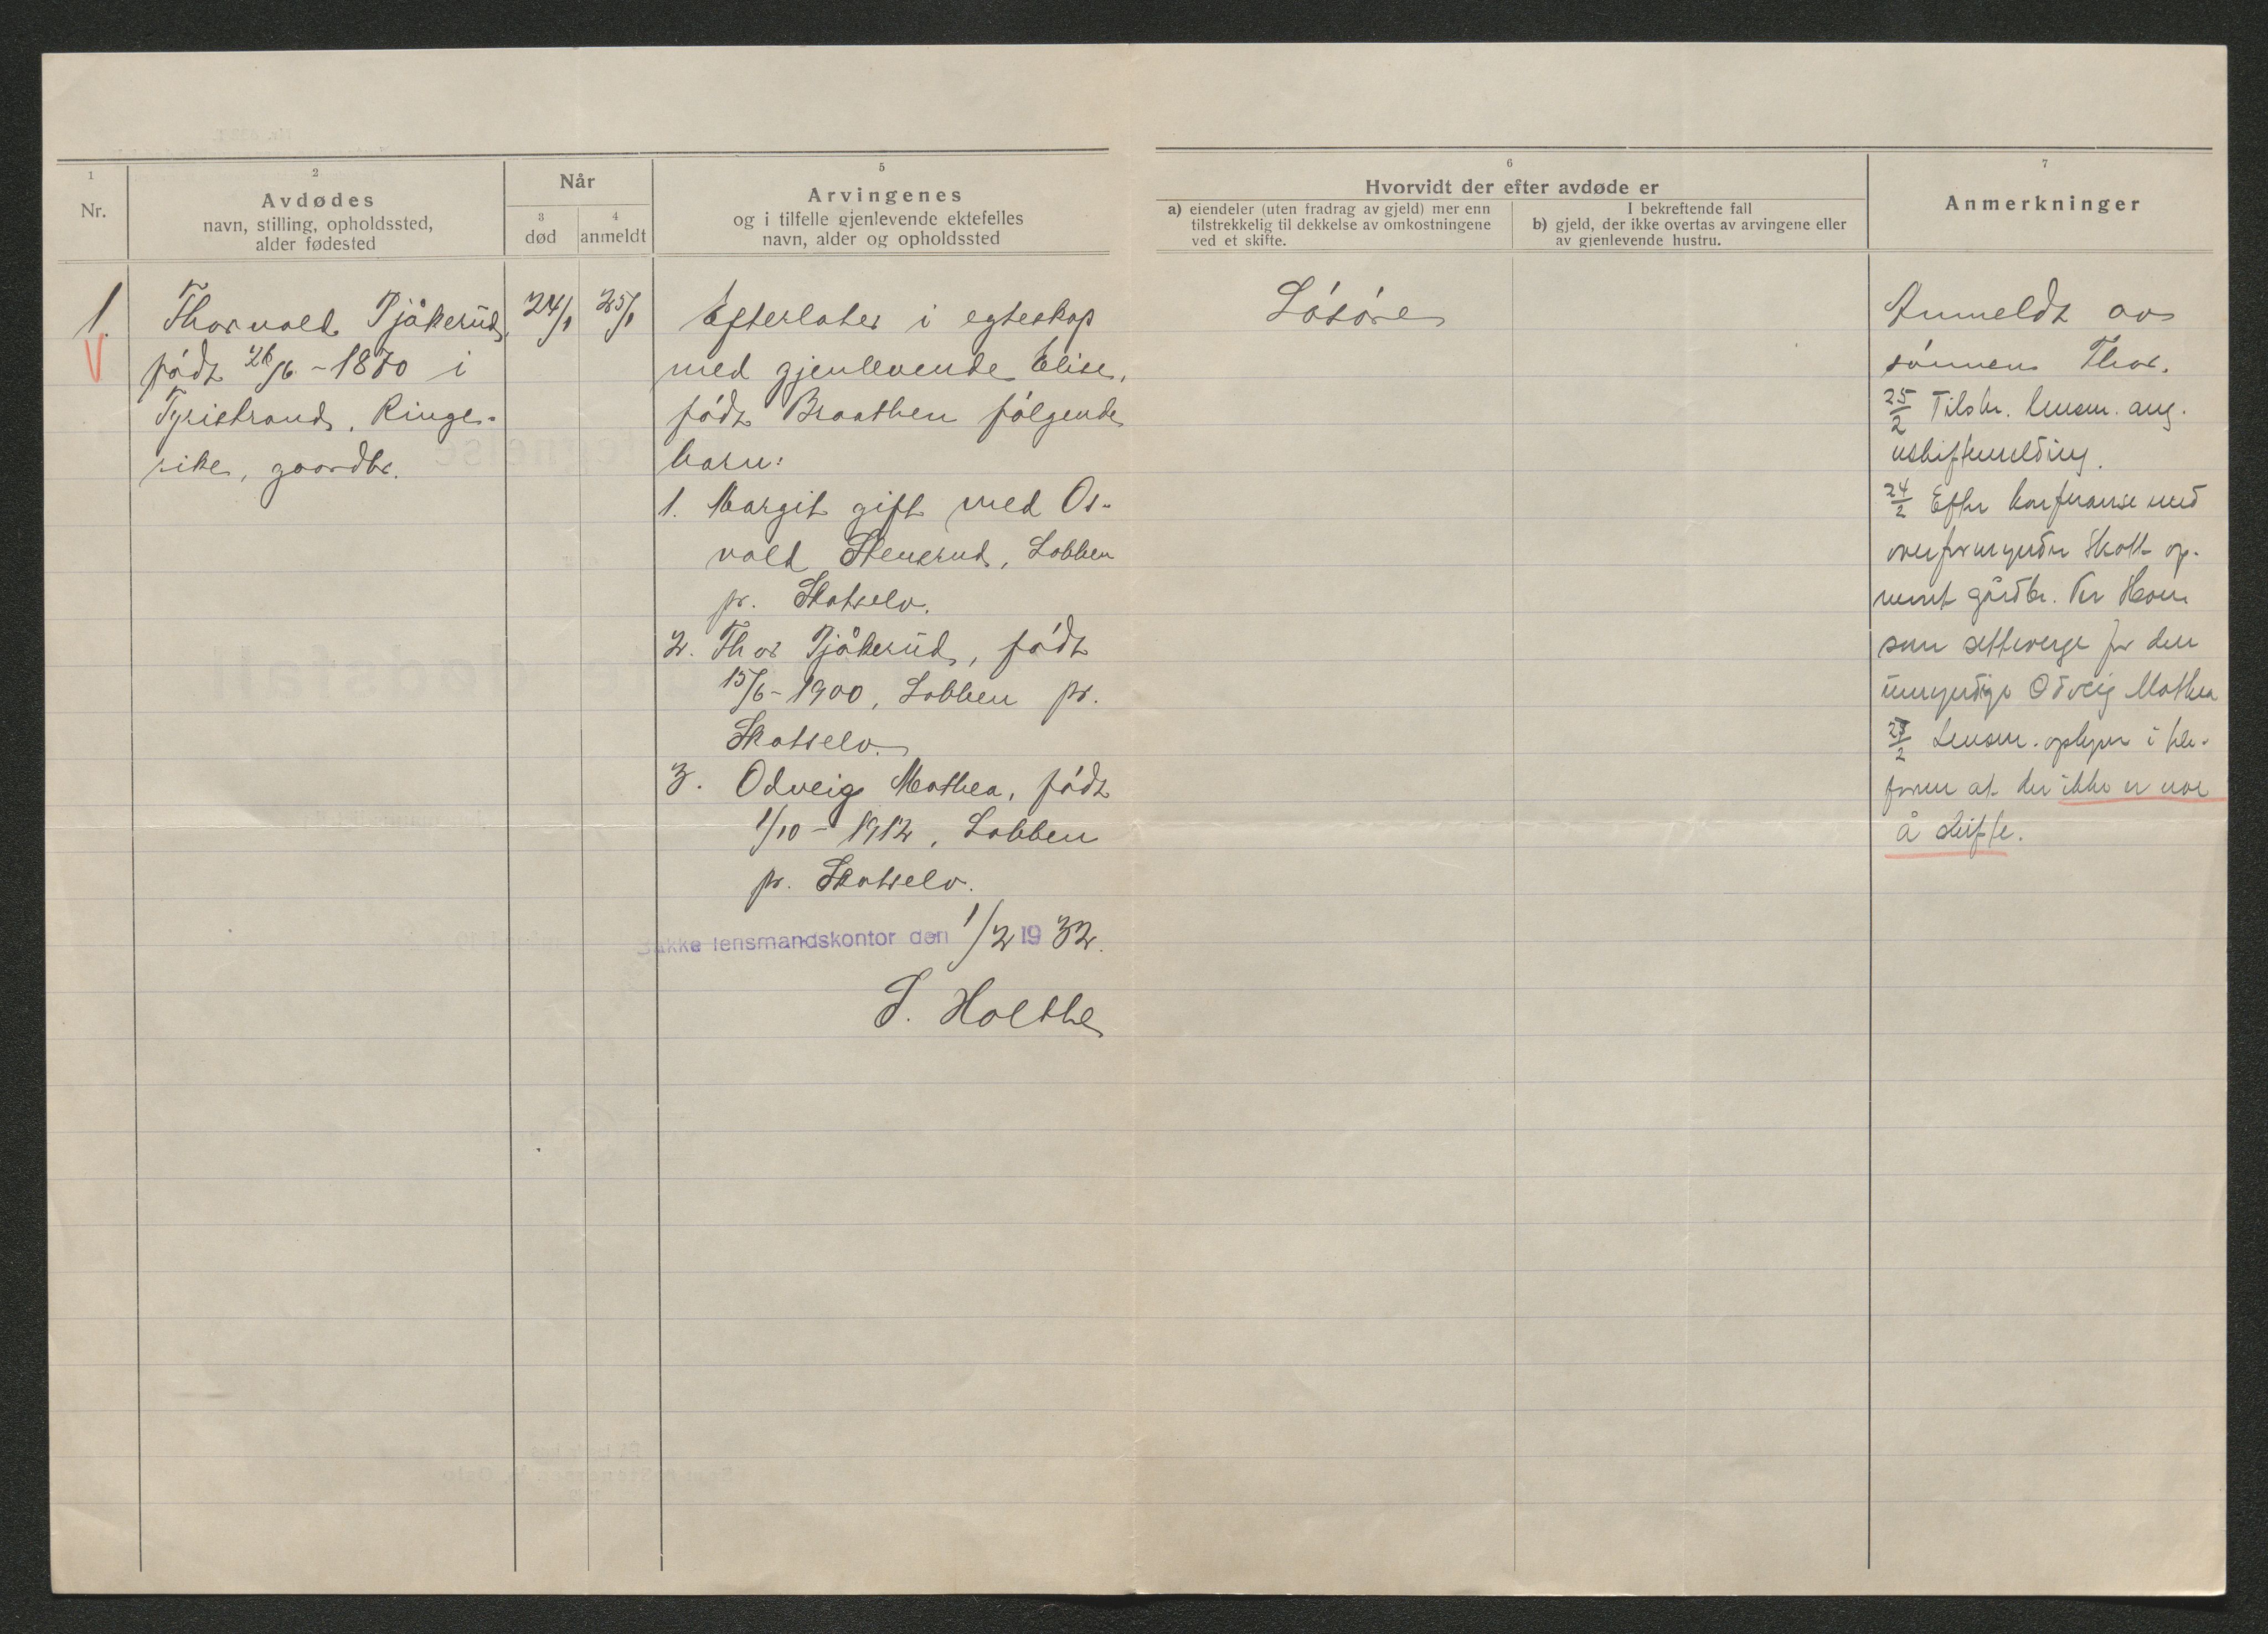 1
Nr.
2
Avdødes
navn, stilling, opholdssted,
alder fødested
Når
3
død
4
anmeldt
5
Arvingenes
og i tilfelle gjenlevende ektefelles
navn, alder og opholdssted
6
Hvorvidt der efter avdøde er
a) eiendeler (uten fradrag av gjeld) mer enn
tilstrekkelig til dekkelse av omkostningene
ved et skifte.
I bekreftende fall
b) gjeld, der ikke overtas av arvingene eller
av gjenlevende hustru.
7
Anmerkninger
1.
V
Thorvald Pjåkerud,
født 26/6 - 1870 i
Tyristrand, Ringe-
rike, gaardbr.
24/1
25/1
Efterlater i egteskap
med gjenlevende Elise,
født Braathen følgende
barn:
1. Margit gift med Os-
vald Stensrud, Lobben
pr. Skotselv.
2. Thor Pjåkerud, født
15/6 - 1900, Lobben pr.
Skotselv.
3. Odveig Mathea, født
1/10 - 1912, Lobben
pr. Skotselv.
Bakke lensmandskontor den 1/2 19 32.
S. Holthe
Løsøre
Anmeldt av
sønnen Thor.
25/2 Tilskr. lensm. ang.
uskiftemelding.
24/2 Efter konferanse med
overformynder Skott op-
nevnt gårdbr. Per Hovn
som setteverge for den
umyndige Odveig Mathea
Lensm. oplyser i
at der ikke er noe
å skifte.